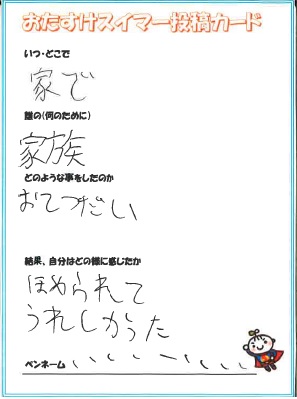 おたすけスイマー投稿カード
いつ・どこで
家で
誰の(何のために)
家族
どのような事をしたのか
おてつだい
結果、自分はどの様に感じたか
ほめられて
うれしかった
ペンネーム